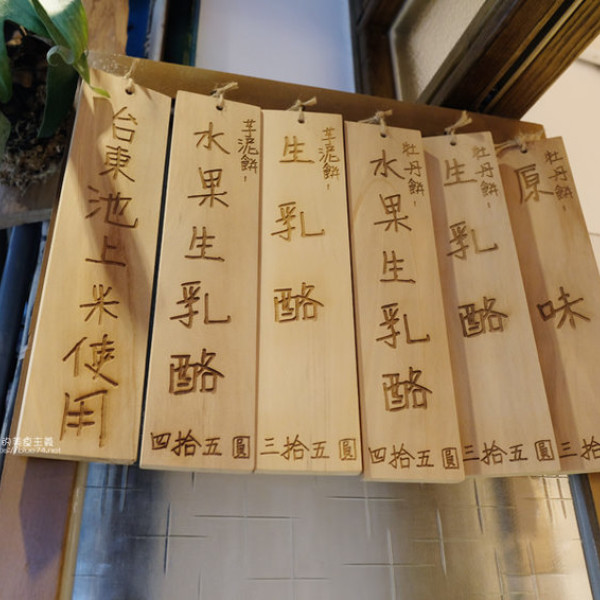 台東池上米使用
芋泥餅-
水果生乳酪
四拾五圓
芋泥餅-
生乳酪
三拾五圓
牡丹餅-
水果生乳酪
四拾五圓
牡丹餅-
生乳酪
三拾五圓
牡丹餅-
原味
三拾